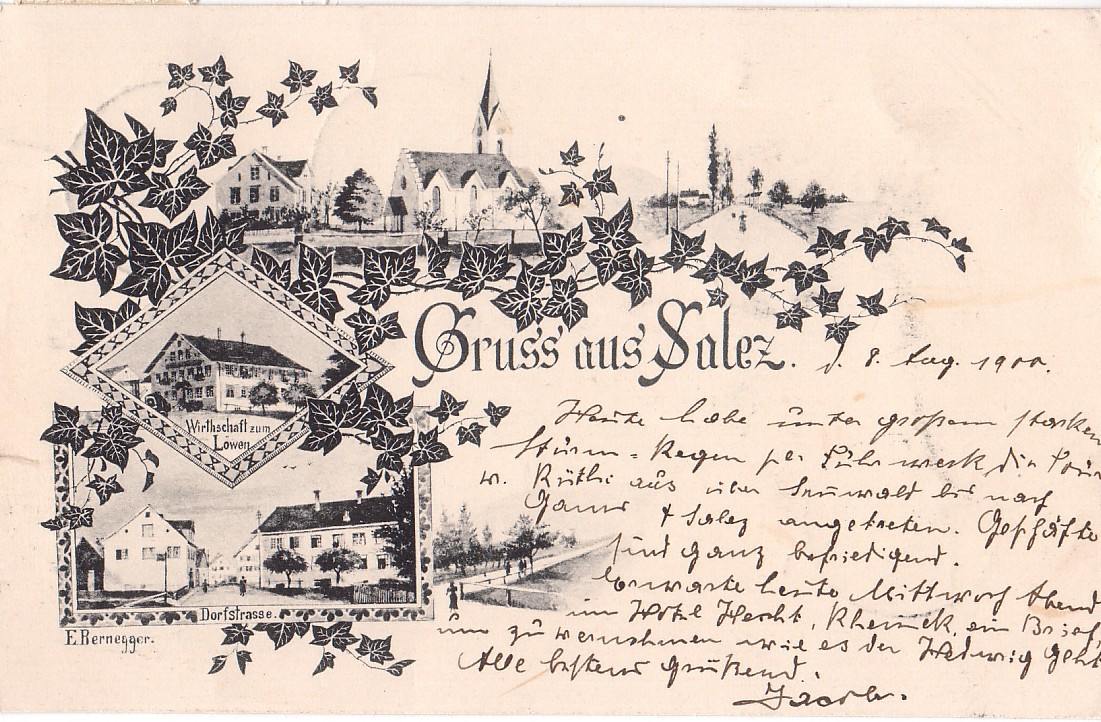 Gruss aus Salez.
d. 8. Aug. 1900.
Wirthschaft zum
Löwen.
Dorfstrasse.
E. Bernegger.
Heute habe unter großem starken
Sturm = Regen per Fuhrwerk die Tour
v. Rüthi aus über Sennwald bis nach
Gams & Salez angetreten. Geschäfte
sind ganz befriedigend.
Erwarte heute Mittwoch Abend
im Hotel Hecht, Rheineck, ein Brief,
um zu vernehmen wie es der Hedwig geht
Alle bestens Grüßend.
Jacob.